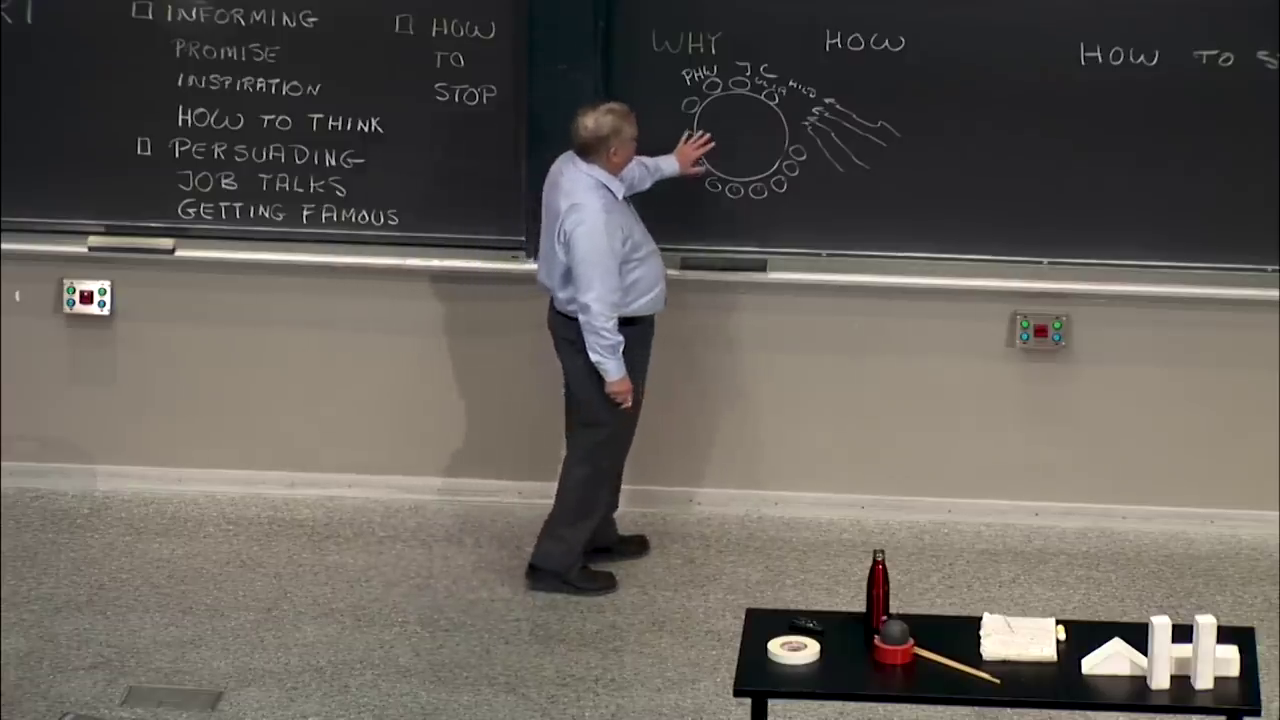 INFORMING
PROMISE
INSPIRATION
HOW TO THINK
PERSUADING
JOB TALKS
GETTING FAMOUS
HOW
TO
STOP
WHY
HOW
HOW TO S
PHW
JC